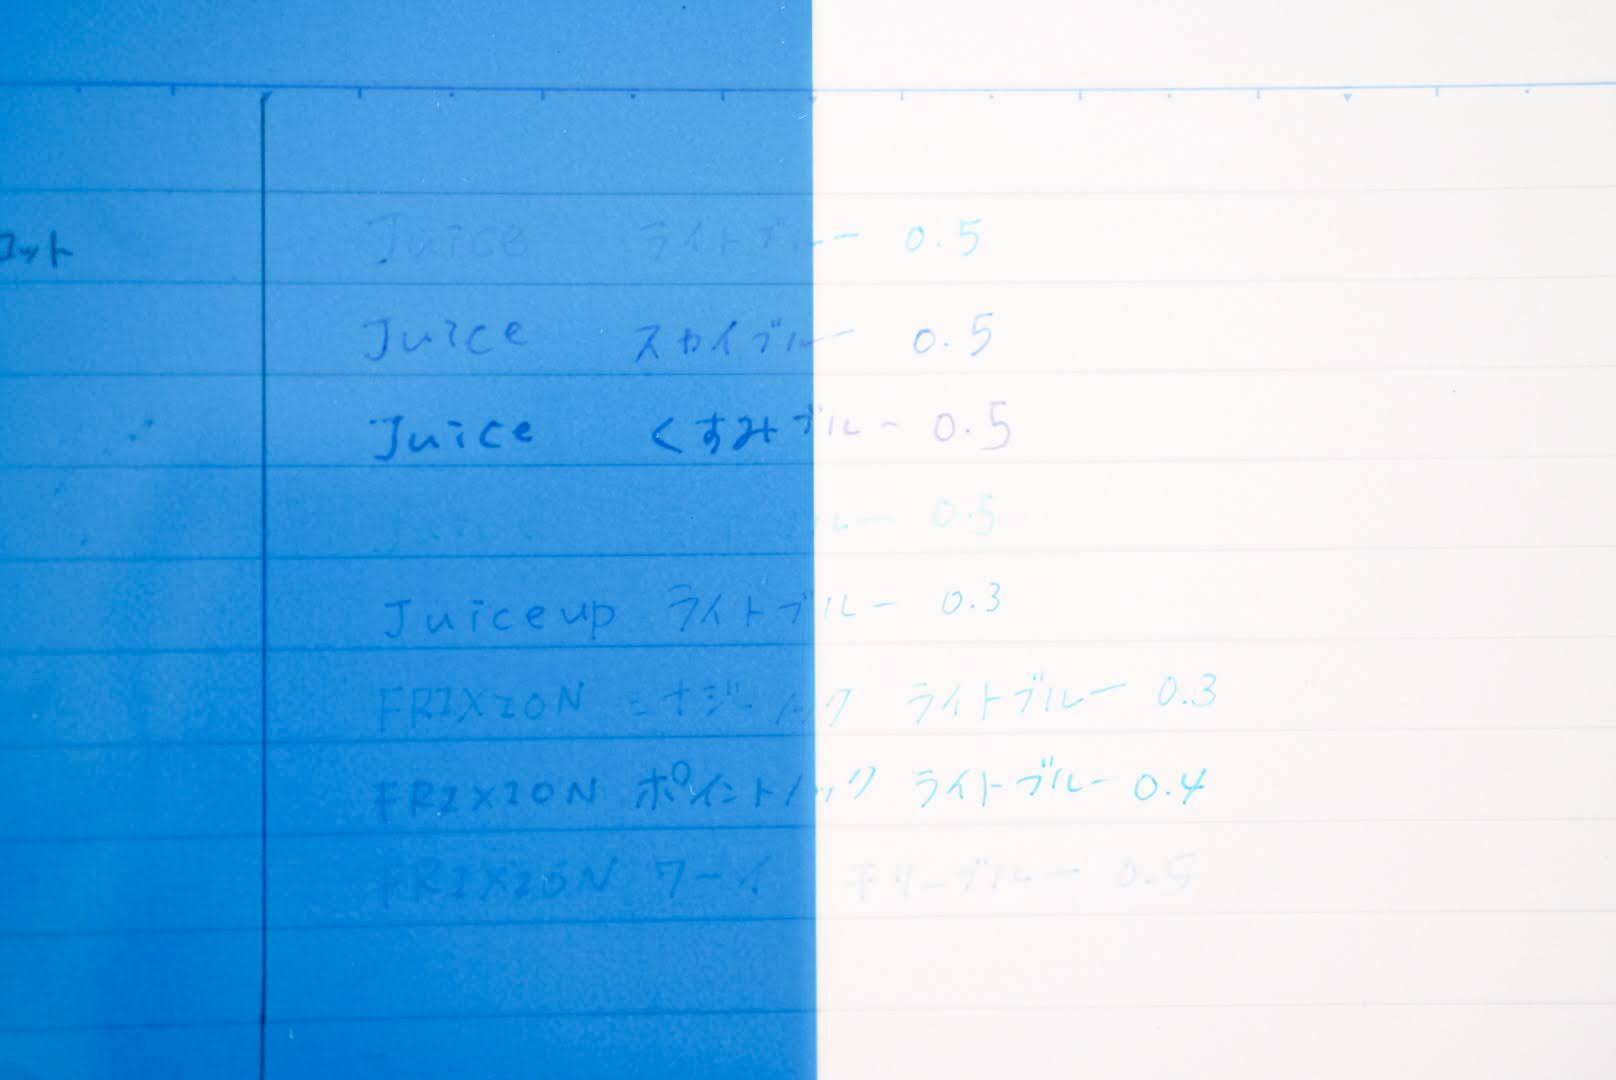 ロット Juice ライトブルー 0.5
Juice スカイブルー 0.5
Juice くすみブルー 0.5
ブルー 0.5
Juice up ライトブルー 0.3
FRIXION シナジーノック ライトブルー 0.3
FRIXION ポイントノック ライトブルー 0.4
FRIXION ブルー 0.5